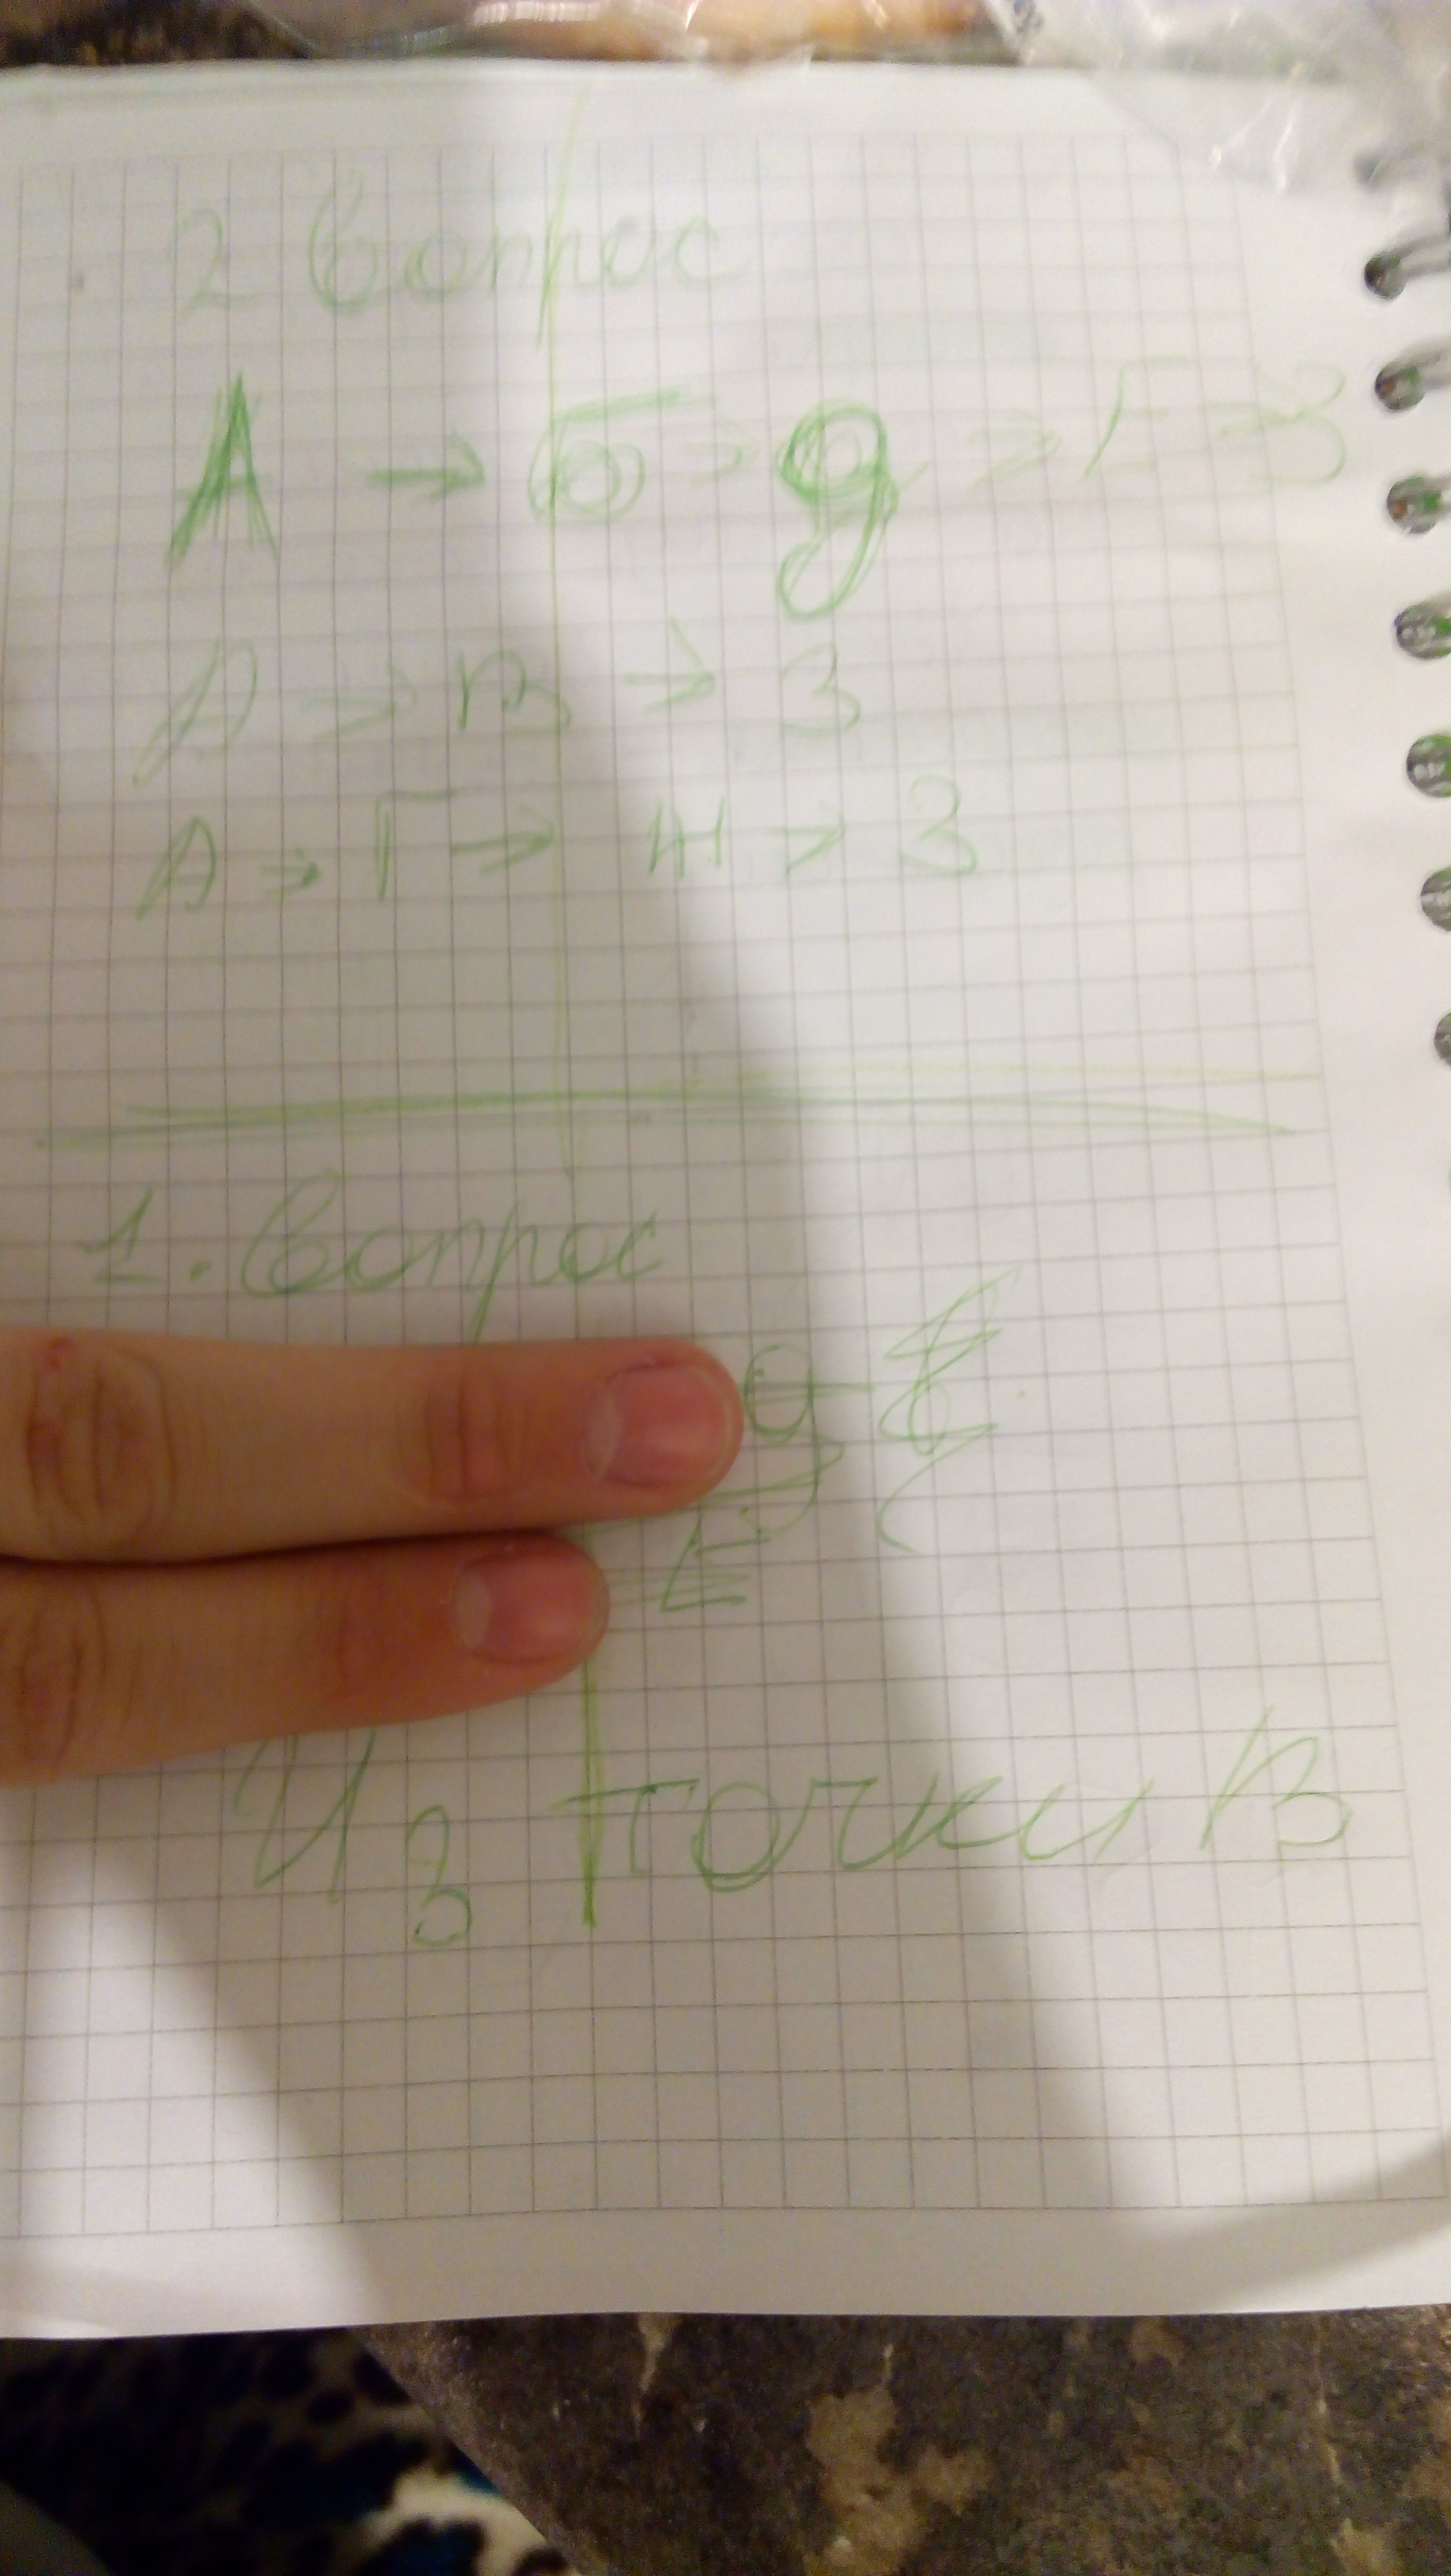 2 вопрос
А → б → д → Г → З
А → В → З
А → Г → Ж → З
1. Вопрос
Е
Из точки В